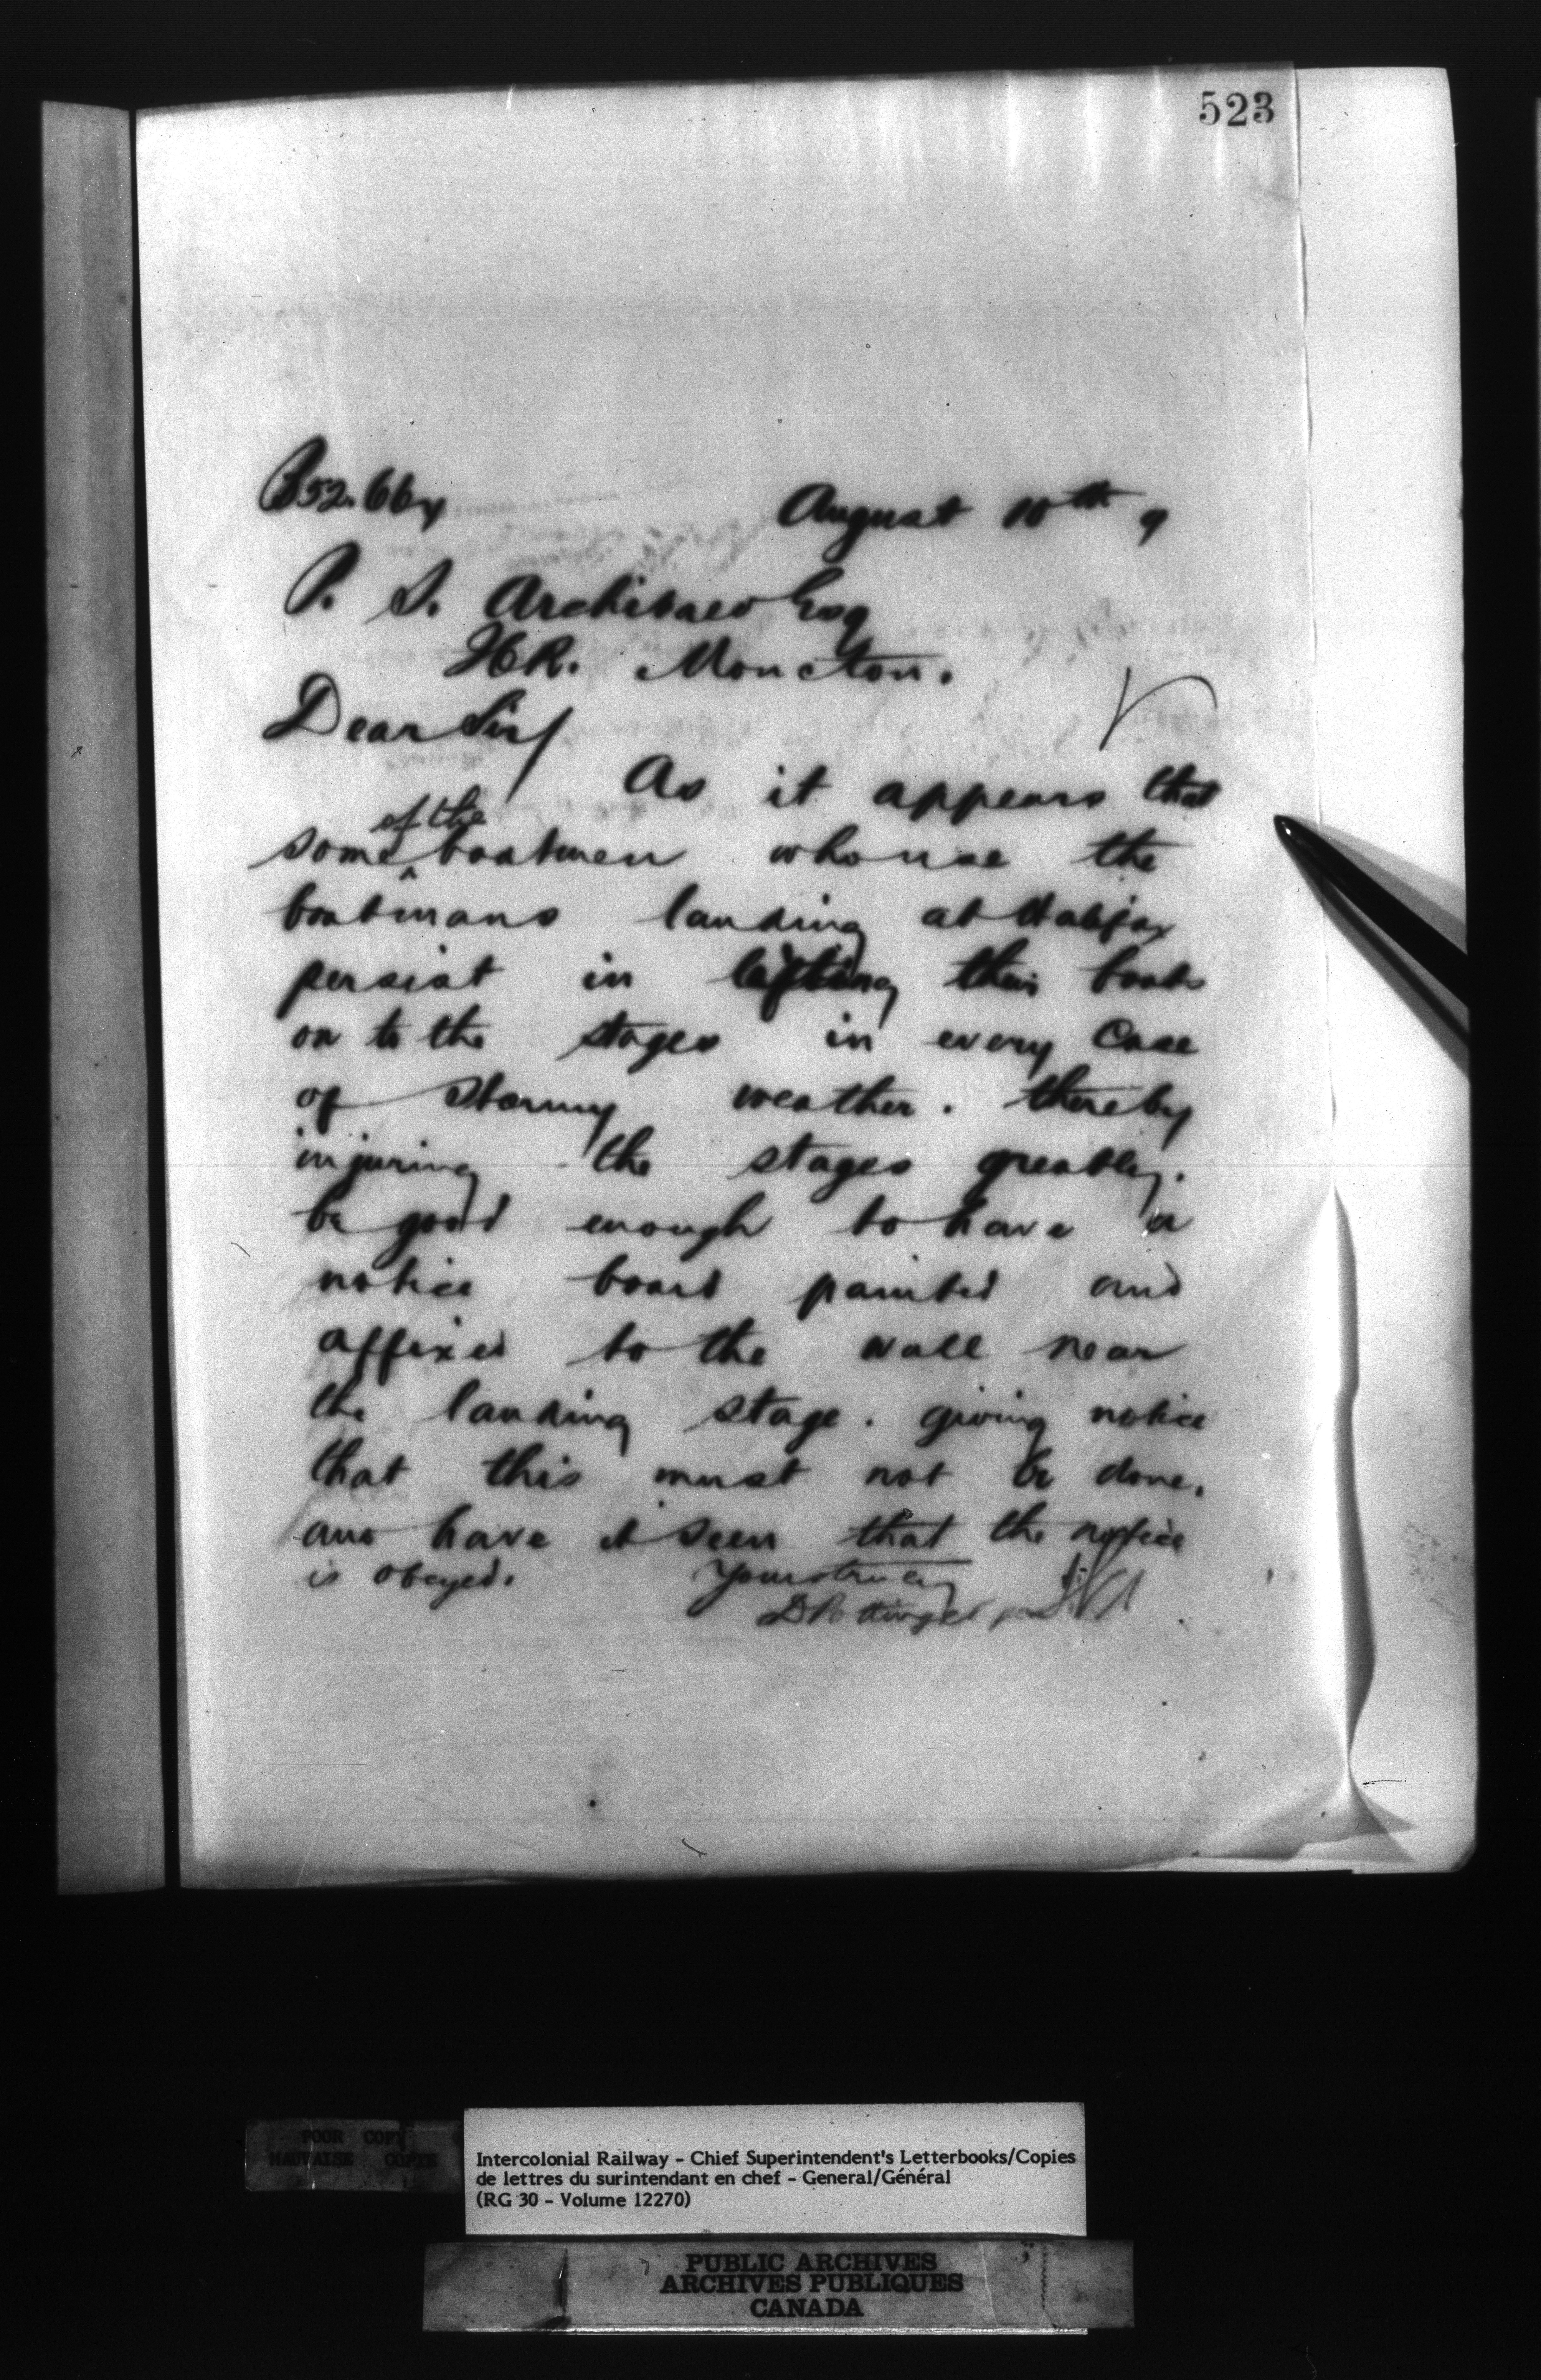 523
B52.664
August 10th 9
P. S. Archibald Esq
Moncton.
Dear Sir/
As it appears that
some of the boatmen who use the
boatmans landing at Halifax
persist in lifting their boats
on to the stages in every case
of stormy weather. thereby
injuring the stages greatly.
be good enough to have a
notice board painted and
affixed to the wall near
the landing stage. giving notice
that this must not be done.
and have it seen that the notice
is obeyed. Yours truly
D Pottinger
POOR COPY
MAUVAISE COPIE
Intercolonial Railway - Chief Superintendent's Letterbooks/Copies
de lettres du surintendant en chef - General/Général
(RG 30 - Volume 12270)
PUBLIC ARCHIVES
ARCHIVES PUBLIQUES
CANADA